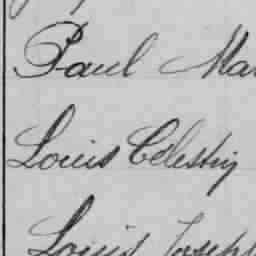 Paul Mar
Louis Célestin
Louis Joseph